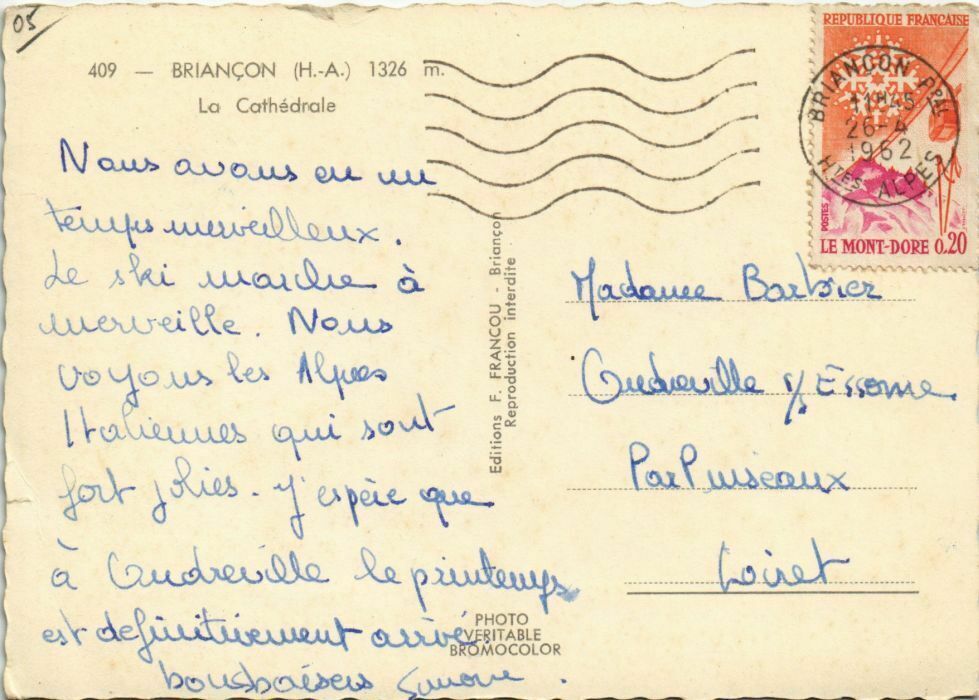 05
409 — BRIANÇON (H.-A.) 1326 m.
La Cathédrale
Nous avons eu un
temps merveilleux.
Le ski marche à
merveille. Nous
voyons les Alpes
Italiennes qui sont
fort jolies. J'espère que
à Ondreville le printemps
est définitivement arrivé.
bons baisers Simone.
Editions F. FRANCOU - Briançon
Reproduction interdite
PHOTO
VERITABLE
BROMOCOLOR
REPUBLIQUE FRANCAISE
POSTES
LE MONT-DORE 0.20
BRIANÇON Pal
11H45
26-4
1962
HTES ALPES
Madame Barbier
Ondreville s/Essonne
Par Puiseaux
Loiret